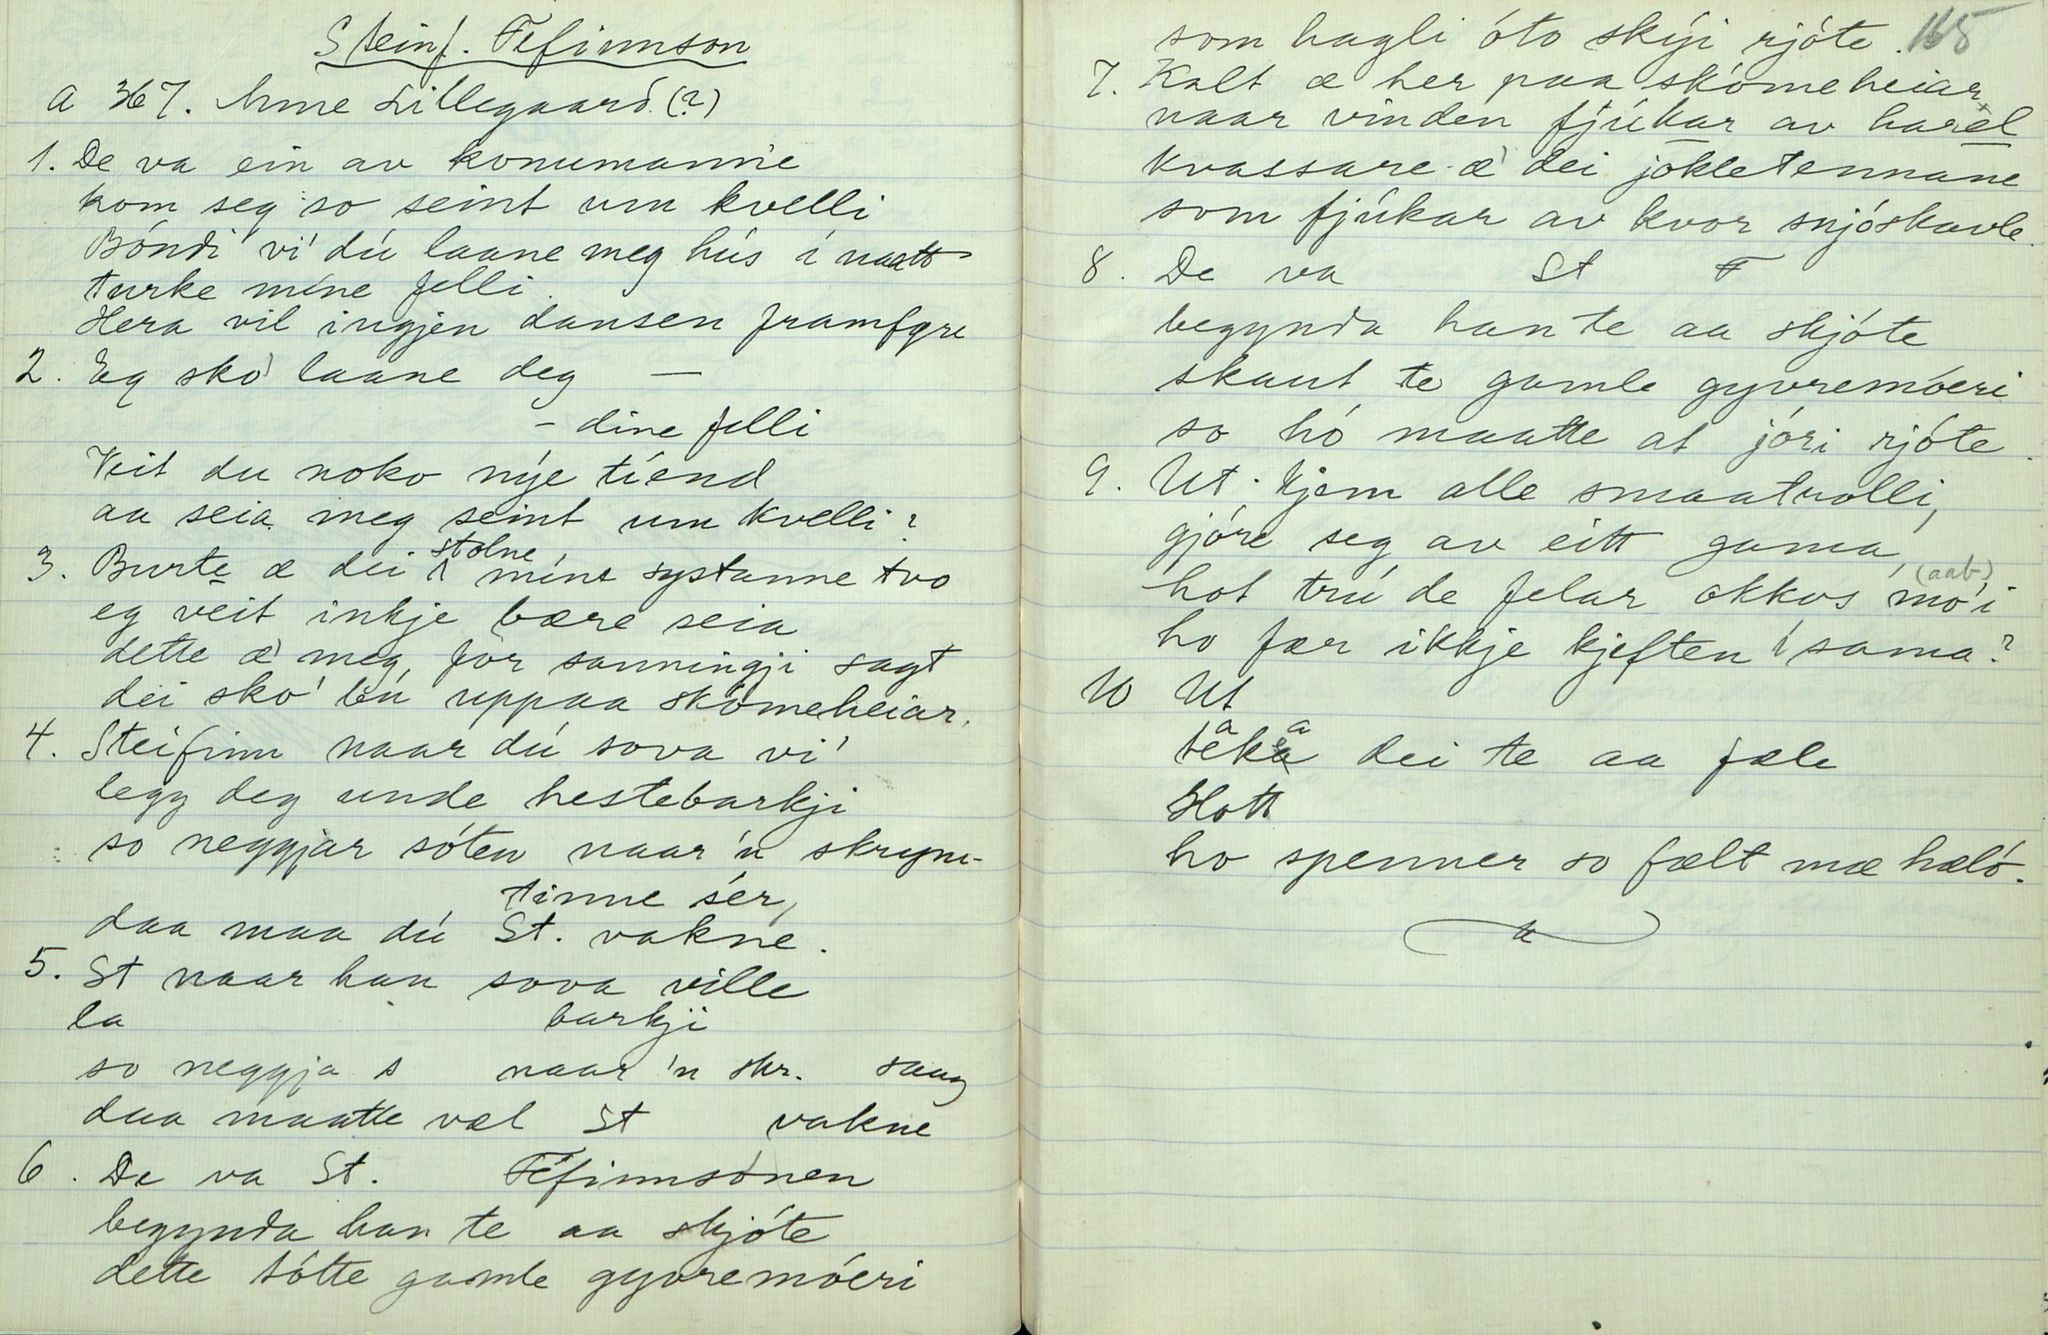 Steinf. Fefinnson
a 367. Anne Lillegaard. (?)
1. De va ein av konumannie
kom seg so seint um kvelli
Bóndi vi' dú laane meg hús i naatt
turke mine felli.
Hera vil ingjen dansen framfyre
2. Eg sko' laane deg —
– dine felli
Veit du noko nýe tíend
aa seia meg seint um kvelli?
3. Burte æ dei stolne míne systanne tvo
eg veit inkje bære seia
dette æ' meg, for sanningji sagt
dei sko' bú uppaa skómeheiar.
4. Steifinn naar dú sova vi'
legg deg unde hestebarkji
so neggjar sóten naar 'n skrym-
tinne sér,
daa maa dú St. vakne.
5. St naar han sova ville
la barkji
so neggja s naar 'n skr. saag
daa maatte væl St vakne
6. De va St. Féfinnsónen
begynda han te aa skjóte
dette tótte gamle gyvremóeri
som hagli óto skýi rjóte. 165
7. Kalt æ her paa skómeheiar
naar vinden fjúkar av harel
kvassare æ' dei jokletennane
som fjúkar av kvor snjóskavle.
8. De va St F
begynda han te aa skjóte
skaut te gamle gyvremóeri
so hó maatte at jóri rjóte.
9. Ut kjem alle smaatrolli,
gjóre seg av eitt gama,
hot trú de felar okkos mó'i (aab)
ho fær ikkje kjeften i sama?
10 Ut
a a
teka dei te aa fæle
Hott
ho spenner so fælt mæ hæló.